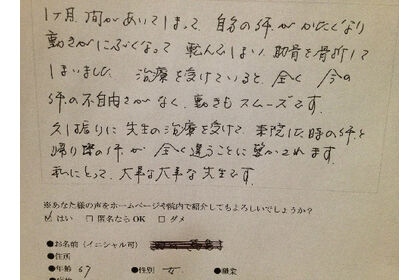 1ヶ月、間があいてしまって、自分の体がかたくなり
動きがにぶくなって 転んでしまい、肋骨を骨折して
しまいました。 治療を受けていると、全く 今の
体の不自由さがなく、動きもスムーズです。
久し振りに 先生の治療を受けて、来院した時の体と
帰り際の体が 全く違うことに驚かされます。
私にとって、大事な大事な先生です。
※あなた様の声をホームページや院内で紹介してもよろしいでしょうか?
☑はい □匿名ならOK □ダメ
●お名前(イニシャル可)
●住所
●年齢 67 ●性別 女 ●職業